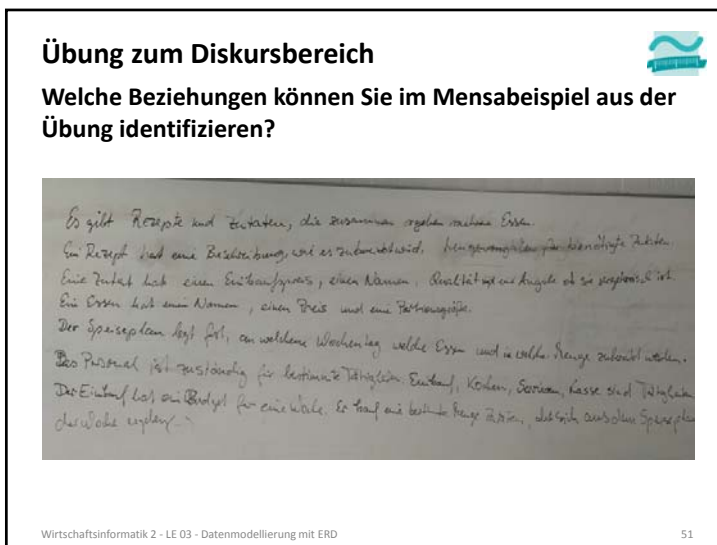 Übung zum Diskursbereich
Welche Beziehungen können Sie im Mensabeispiel aus der
Übung identifizieren?
Es gibt Rezepte und Zutaten, die zusammen ergeben mehrere Essen.
Ein Rezept hat eine Beschreibung, wie es zubereitet wird. Mengenangaben für benötigte Zutaten.
Eine Zutat hat einen Einkaufspreis, einen Namen, Qualität und eine Angabe ob sie vegetarisch ist.
Ein Essen hat einen Namen, einen Preis und eine Portionsgröße.
Der Speiseplan legt fest, an welchem Wochentag welche Essen und in welcher Menge zubereitet werden.
Das Personal ist zuständig für bestimmte Tätigkeiten. Einkauf, Kochen, Servieren, Kasse sind Tätigkeiten
Der Einkauf hat ein Budget für eine Woche. Er kauf eine bestimmte Menge Zutaten, die sich aus dem Speiseplan
der Woche ergeben
Wirtschaftsinformatik 2 - LE 03 - Datenmodellierung mit ERD
51